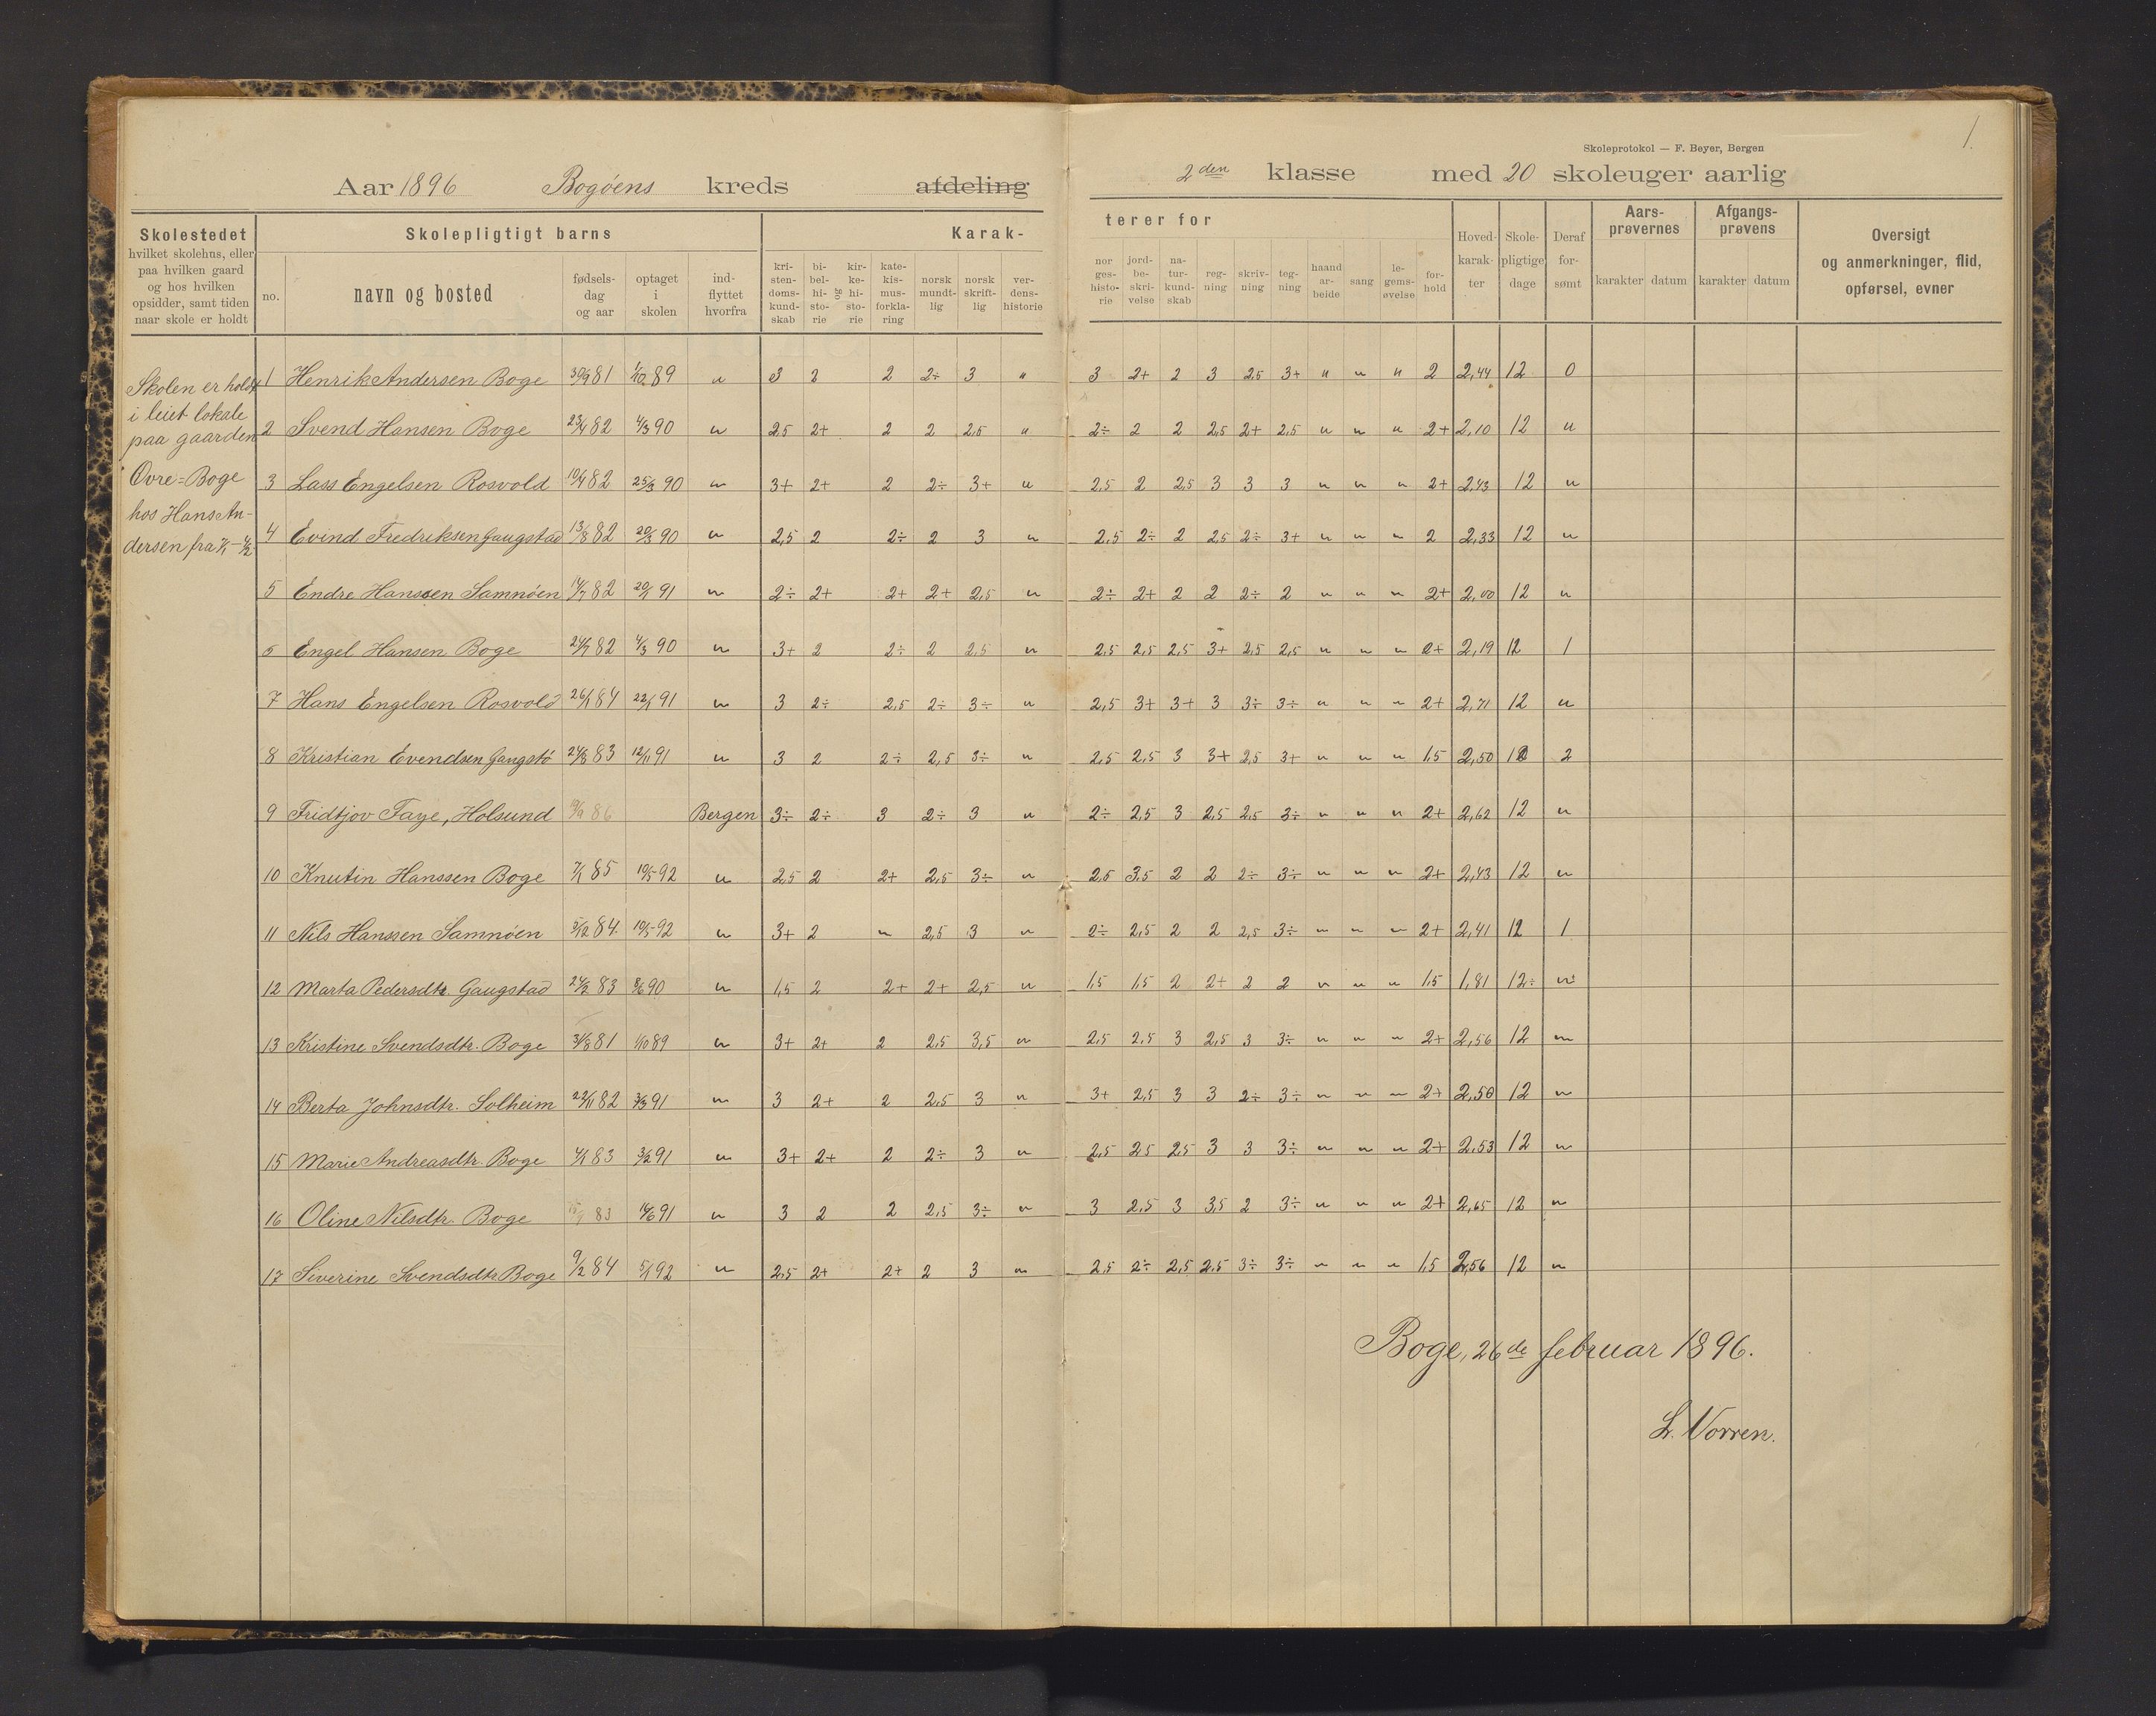 1.
Skoleprotokol — F. Beyer, Bergen
Aar 1896 Bogøens kreds afdeling 2den klasse med 20 skoleuger aarlig
Skolestedet
hvilket skolehus, eller
paa hvilken gaard
og hos hvilken
opsidder, samt tiden
naar skole er holdt
Skolepligtigt barns
no.
navn og bosted
fødsels-
dag
og aar
optaget
i
skolen
ind-
flyttet
hvorfra
Karak-
kri-
sten-
doms-
kund-
skab
bi-
bel-
hi-
sto-
rie
og
kir-
ke-
hi-
sto-
rie
kate-
kis-
mus-
forkla-
ring
norsk
mundt-
lig
norsk
skrift-
lig
ver-
dens-
historie
terer for
nor
ges-
histo-
rie
jord-
be-
skri-
velse
na-
tur-
kund-
skab
reg-
ning
skriv-
ning
teg-
ning
haand
ar-
beide
sang
le-
gems-
øvelse
for-
hold
Hoved-
karak-
ter
Skole-
pligtige
dage
Deraf
for-
sømt
Aars-
prøvernes
karakter datum
Afgangs-
prøvens
karakter datum
Oversigt
og anmerkninger, flid,
opførsel, evner
Skolen er holdt
i leiet lokale
paa gaarden
Øvre=Boge
hos Hans An-
dersen fra
1 Henrik Andersen Boge 30/9 81 1/10 89 " 3 2 2 2÷ 3 " 3 2+ 2 3 2,5 3+ " " " 2 2,44 12 0
2 Svend Hansen Boge 23/4 82 4/3 90 " 2,5 2+ 2 2 2,5 " 2÷ 2 2 2,5 2+ 2,5 " " " 2+ 2,10 12 "
3 Lass Engelsen Rosvold 10/4 82 25/3 90 " 3+ 2+ 2 2÷ 3+ " 2,5 2 2,5 3 3 3 " " " 2+ 2,43 12 "
4 Evind Fredriksen Gaugstad 13/8 82 20/3 90 " 2,5 2 2÷ 2 3 " 2,5 2÷ 2 2,5 2÷ 3+ " " " 2 2,33 12 "
5 Endre Hanssen Samnøen 82 91 " 2÷ 2+ 2+ 2+ 2,5 " 2÷ 2+ 2 2 2÷ 2 " " " 2+ 2,00 12 "
6 Engel Hansen Boge 82 4/3 90 " 3+ 2 2÷ 2 2,5 " 2,5 2,5 2,5 3+ 2,5 2,5 " " " 2+ 2,19 12 1
7 Hans Engelsen Rosvold 26/1 84 22/1 91 " 3 2÷ 2,5 2÷ 3÷ " 2,5 3+ 3+ 3 3÷ 3÷ " " " 2+ 2,71 12 "
8 Kristian Evendsen Gangstø 24/8 83 12/11 91 " 3 2 2÷ 2,5 3÷ " 2,5 2,5 3 3+ 2,5 3+ " " " 1,5 2,50 12 2
9 Fridtjov Faye, Holsund 86 Bergen 3÷ 2÷ 3 2÷ 3 " 2÷ 2,5 3 2,5 2,5 3÷ " " " 2+ 2,62 12 "
10 Knutin Hanssen Boge 7/1 85 10/5 92 " 2,5 2 2+ 2,5 3÷ " 2,5 3,5 2 2 2÷ 3÷ " " " 2+ 2,43 12 "
11 Nils Hanssen Samnøen 5/12 84. 10/5 92 " 3+ 2 " 2,5 3 " 2÷ 2,5 2 2 2,5 3÷ " " " 2+ 2,41 12 1
12 Marta Pedersdtr. Gaugstad 83 8/6 90 " 1,5 2 2+ 2+ 2,5 " 1,5 1,5 2 2+ 2 2 " " " 1,5 1,81 12 "
13 Kristine Svendsdtr. Boge 31/8 81 1/10 89 " 3+ 2+ 2 2,5 3,5 " 2,5 2,5 3 2,5 3 3÷ " " " 2+ 2,56 12 "
14 Berta Johnsdtr. Solheim 22/11 82 3/3 91 " 3 2+ 2 2,5 3 " 3+ 2,5 3 3 2÷ 3÷ " " " 2+ 2,50 12 "
15 Marie Andreasdtr. Boge 4/1 83 3/2 91 " 3+ 2+ 2 2÷ 3 " 2,5 2,5 2,5 3 3 3÷ " " " 2+ 2,53 12 "
16 Oline Nilsdtr. Boge 83 91 " 3 2 2 2,5 3÷ " 3 2,5 3 3,5 2 3÷ " " " 2+ 2,65 12 "
17 Siverine Svendsdtr Boge 9/2 84 5/1 92 " 2,5 2+ 2+ 2 3 " 2,5 2÷ 2,5 2,5 3÷ 3÷ " " " 1,5 2,56 12 "
Boge, 26de februar 1896.
L. Vorren.